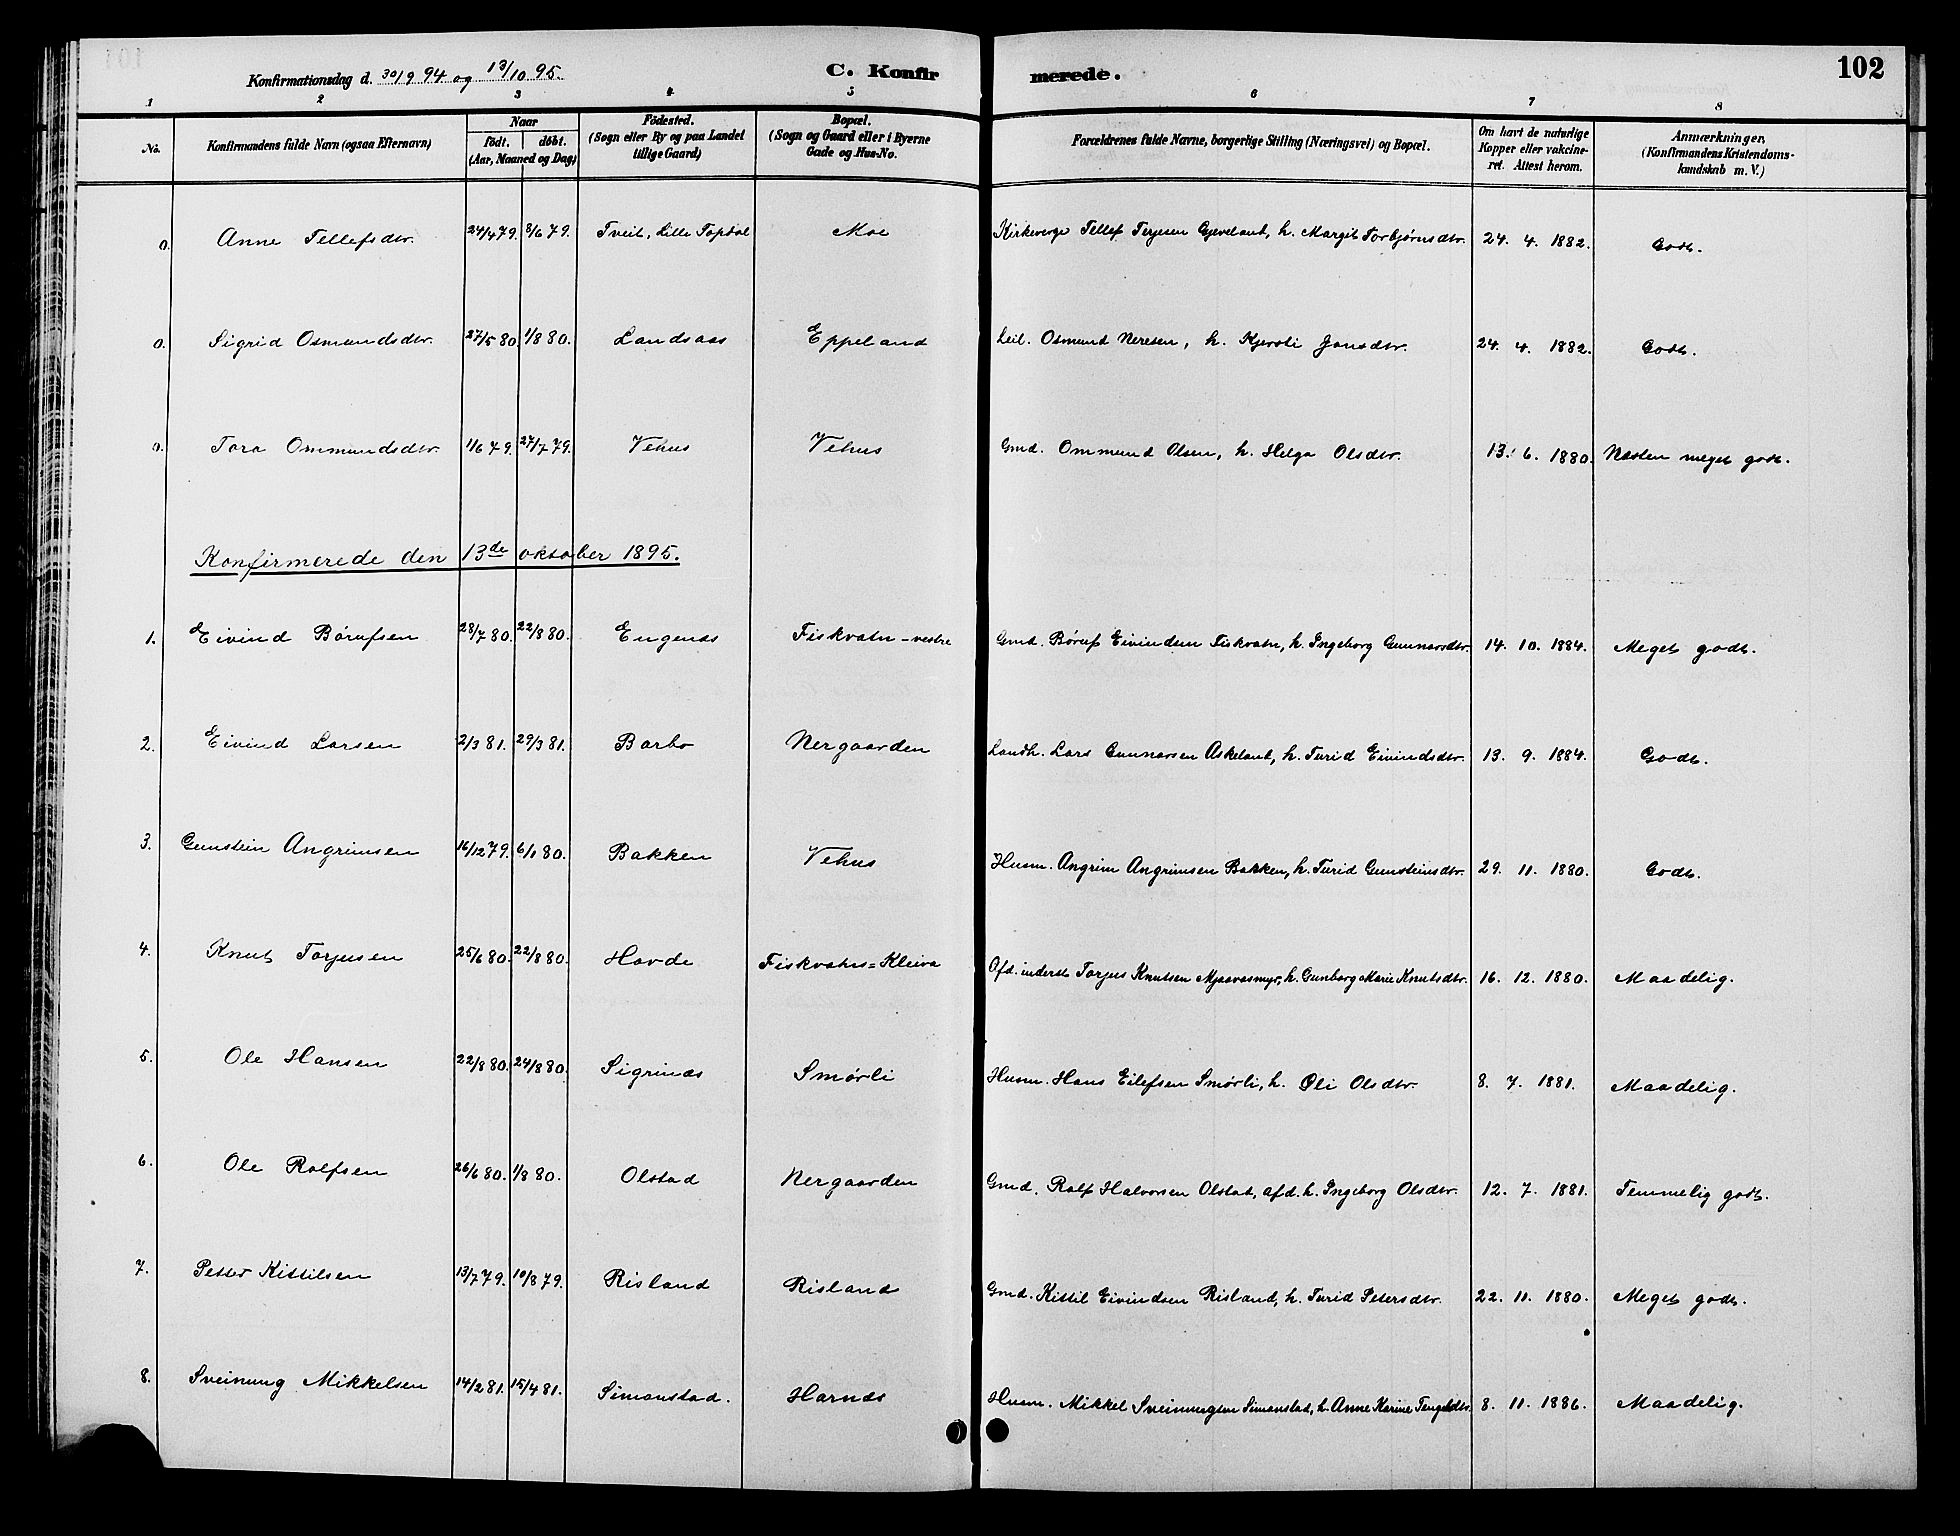 Konfirmationsdag d. 30/9 94 og 13/10 95. C. Konfirmerede. 102
1 2 3 4 5 6 7 8
No. Konfirmandens fulde Navn (ogsaa Efternavn) Naar födt. döbt. (Aar, Maaned og Dag) Födested. (Sogn eller By og paa Landet tillige Gaard) Bopæl. (Sogn og Gaard eller i Byerne Gade og Hus-No. Forældrenes fulde Navne, borgerlige Stilling (Næringsvei) og Bopæl. Om havt de naturlige Kopper eller vakcineret. Attest herom. Anmærkninger, (Konfirmandens Kristendomskundskab m. V.)
0. Anne Tellefsdtr. 24/4 79. 8/6 79. Tveit, Lille Topdal Moe Kirkeverge Tellef Terjesen Gjeveland, h. Margit Torbjørnsdtr. 24. 4. 1882. Godt.
0. Sigrid Osmundsdtr. 27/5 80. 1/8 80. Landsaas Eppeland Leil. Osmund Neresen, h. Kjersti Jonsdtr. 24. 4. 1882. Godt.
0. Tora Ommundsdtr. 1/6 79. 27/7 79. Vehus Vehus Gmd. Ommund Olsen, h. Helga Olsdtr. 13. 6. 1880. Næsten meget godt.
Konfirmerede den 13de oktober 1895.
1. Eivind Børufsen 28/7 80. 22/8 80. Engenes Fiskvatn-vestre Gmd. Børuf Eivindsen Fiskvatn, h. Ingeborg Gunnarsdtr. 14. 10. 1884. Meget godt.
2. Eivind Larsen 2/3 81. 29/3 81. Barbo Nergaarden Landh. Lars Gunnarsen Askeland, h. Turid Eivindsdtr. 13. 9. 1884. Godt.
3. Gunstein Angrimsen 16/12 79. 6/1 80. Bakken Vehus Husm. Angrim Angrimsen Bakken, h. Turid Gunsteinsdtr. 29. 11. 1880. Godt.
4. Knut Torjusen 25/6 80. 22/8 80. Hovde Fiskvatn=Kleiva Afd. inderst Torjus Knutsen Mjaavasmyr, h. Gunborg Marie Knutsdtr. 16. 12. 1880. Maadelig.
5. Ole Hansen 22/8 80. 24/8 80. Sigrinæs Smørli Husm. Hans Eilefsen Smørli, h. Oli Olsdtr. 8. 7. 1881. Maadelig.
6. Ole Rolfsen 26/6 80. 1/8 80. Olstad Nergaarden Gmd. Rolf Halvorsen Olstad, afd. h. Ingeborg Olsdtr. 12. 7. 1881. Temmelig godt.
7. Petter Kittilsen 13/7 79. 10/8 79. Risland Risland Gmd. Kittil Eivindsen Risland, h. Turid Petersdtr. 22. 11. 1880. Meget godt.
8. Sveinung Mikkelsen 14/2 81. 15/4 81. Simonstad. Harnes Husm. Mikkel Sveinungsen Simonstad, h. Anne Karine 8. 11. 1886. Maadelig.